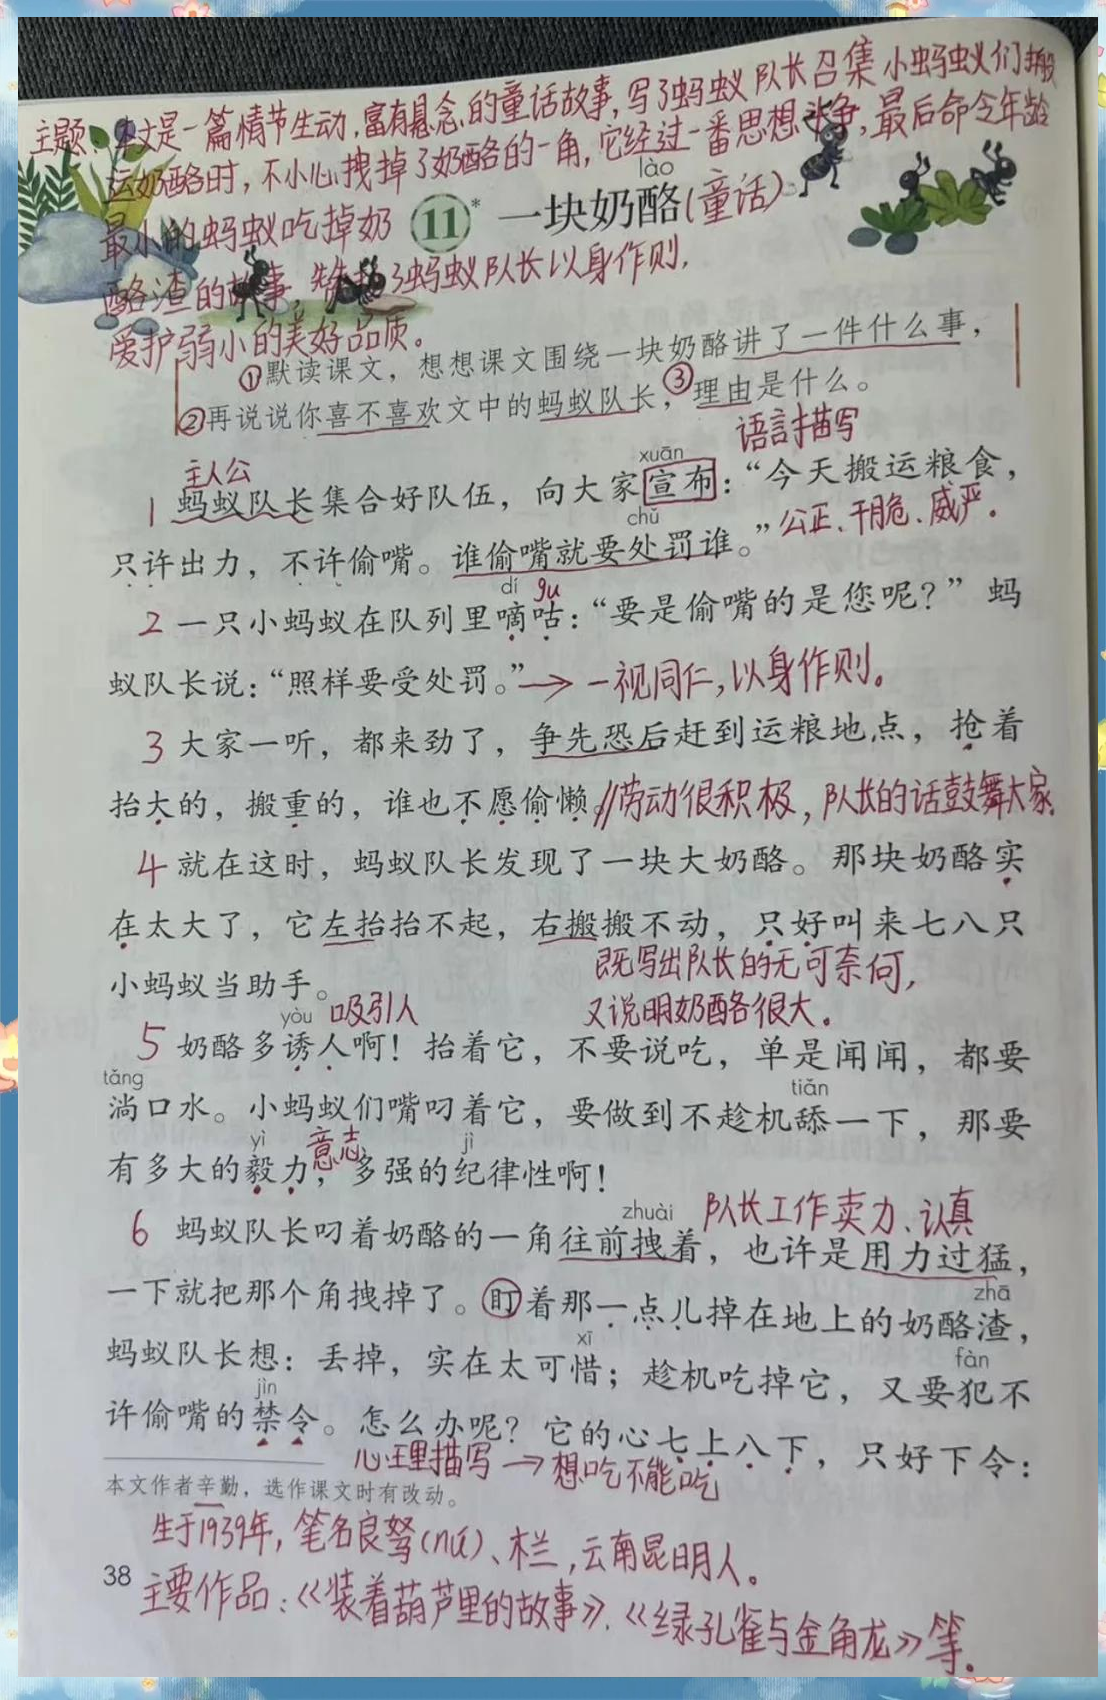 主题：本文是一篇情节生动，富有悬念的童话故事，写了蚂蚁队长召集小蚂蚁们搬
运奶酪时，不小心拽掉了奶酪的一角，它经过一番思想斗争，最后命令年龄
最小的蚂蚁吃掉奶
酪渣的故事，赞扬了蚂蚁队长以身作则，
爱护弱小的美好品质。
lào
11* 一块奶酪(童话)
①默读课文，想想课文围绕一块奶酪讲了一件什么事，
②再说说你喜不喜欢文中的蚂蚁队长，③理由是什么。
语言描写
主人公
xuān
1 蚂蚁队长集合好队伍，向大家宣布：“今天搬运粮食，
chǔ
只许出力，不许偷嘴。谁偷嘴就要处罚谁。”公正、干脆、威严。
dí gu
2 一只小蚂蚁在队列里嘀咕：“要是偷嘴的是您呢？”蚂
蚁队长说：“照样要受处罚。”→一视同仁，以身作则。
3 大家一听，都来劲了，争先恐后赶到运粮地点，抢着
抬大的，搬重的，谁也不愿偷懒。∥劳动很积极，队长的话鼓舞大家。
4 就在这时，蚂蚁队长发现了一块大奶酪。那块奶酪实
在太大了，它左抬抬不起，右搬搬不动，只好叫来七八只
既写出队长的无可奈何，
小蚂蚁当助手。
又说明奶酪很大。
yòu 吸引人
5 奶酪多诱人啊！抬着它，不要说吃，单是闻闻，都要
tǎng
tiǎn
淌口水。小蚂蚁们嘴叼着它，要做到不趁机舔一下，那要
yì 意志 jì
有多大的毅力，多强的纪律性啊！
zhuài 队长工作卖力、认真
6 蚂蚁队长叼着奶酪的一角往前拽着，也许是用力过猛，
一下就把那个角拽掉了。盯着那一点儿掉在地上的奶酪渣，
zhā
xī
蚂蚁队长想：丢掉，实在太可惜；趁机吃掉它，又要犯不
fàn
jìn
许偷嘴的禁令。怎么办呢？它的心七上八下，只好下令：
心理描写→想吃不能吃
本文作者辛勤，选作课文时有改动。
生于1939年，笔名良驽(nú)、木兰，云南昆明人。
38
主要作品：《装着葫芦里的故事》.《绿孔雀与金角龙》等.